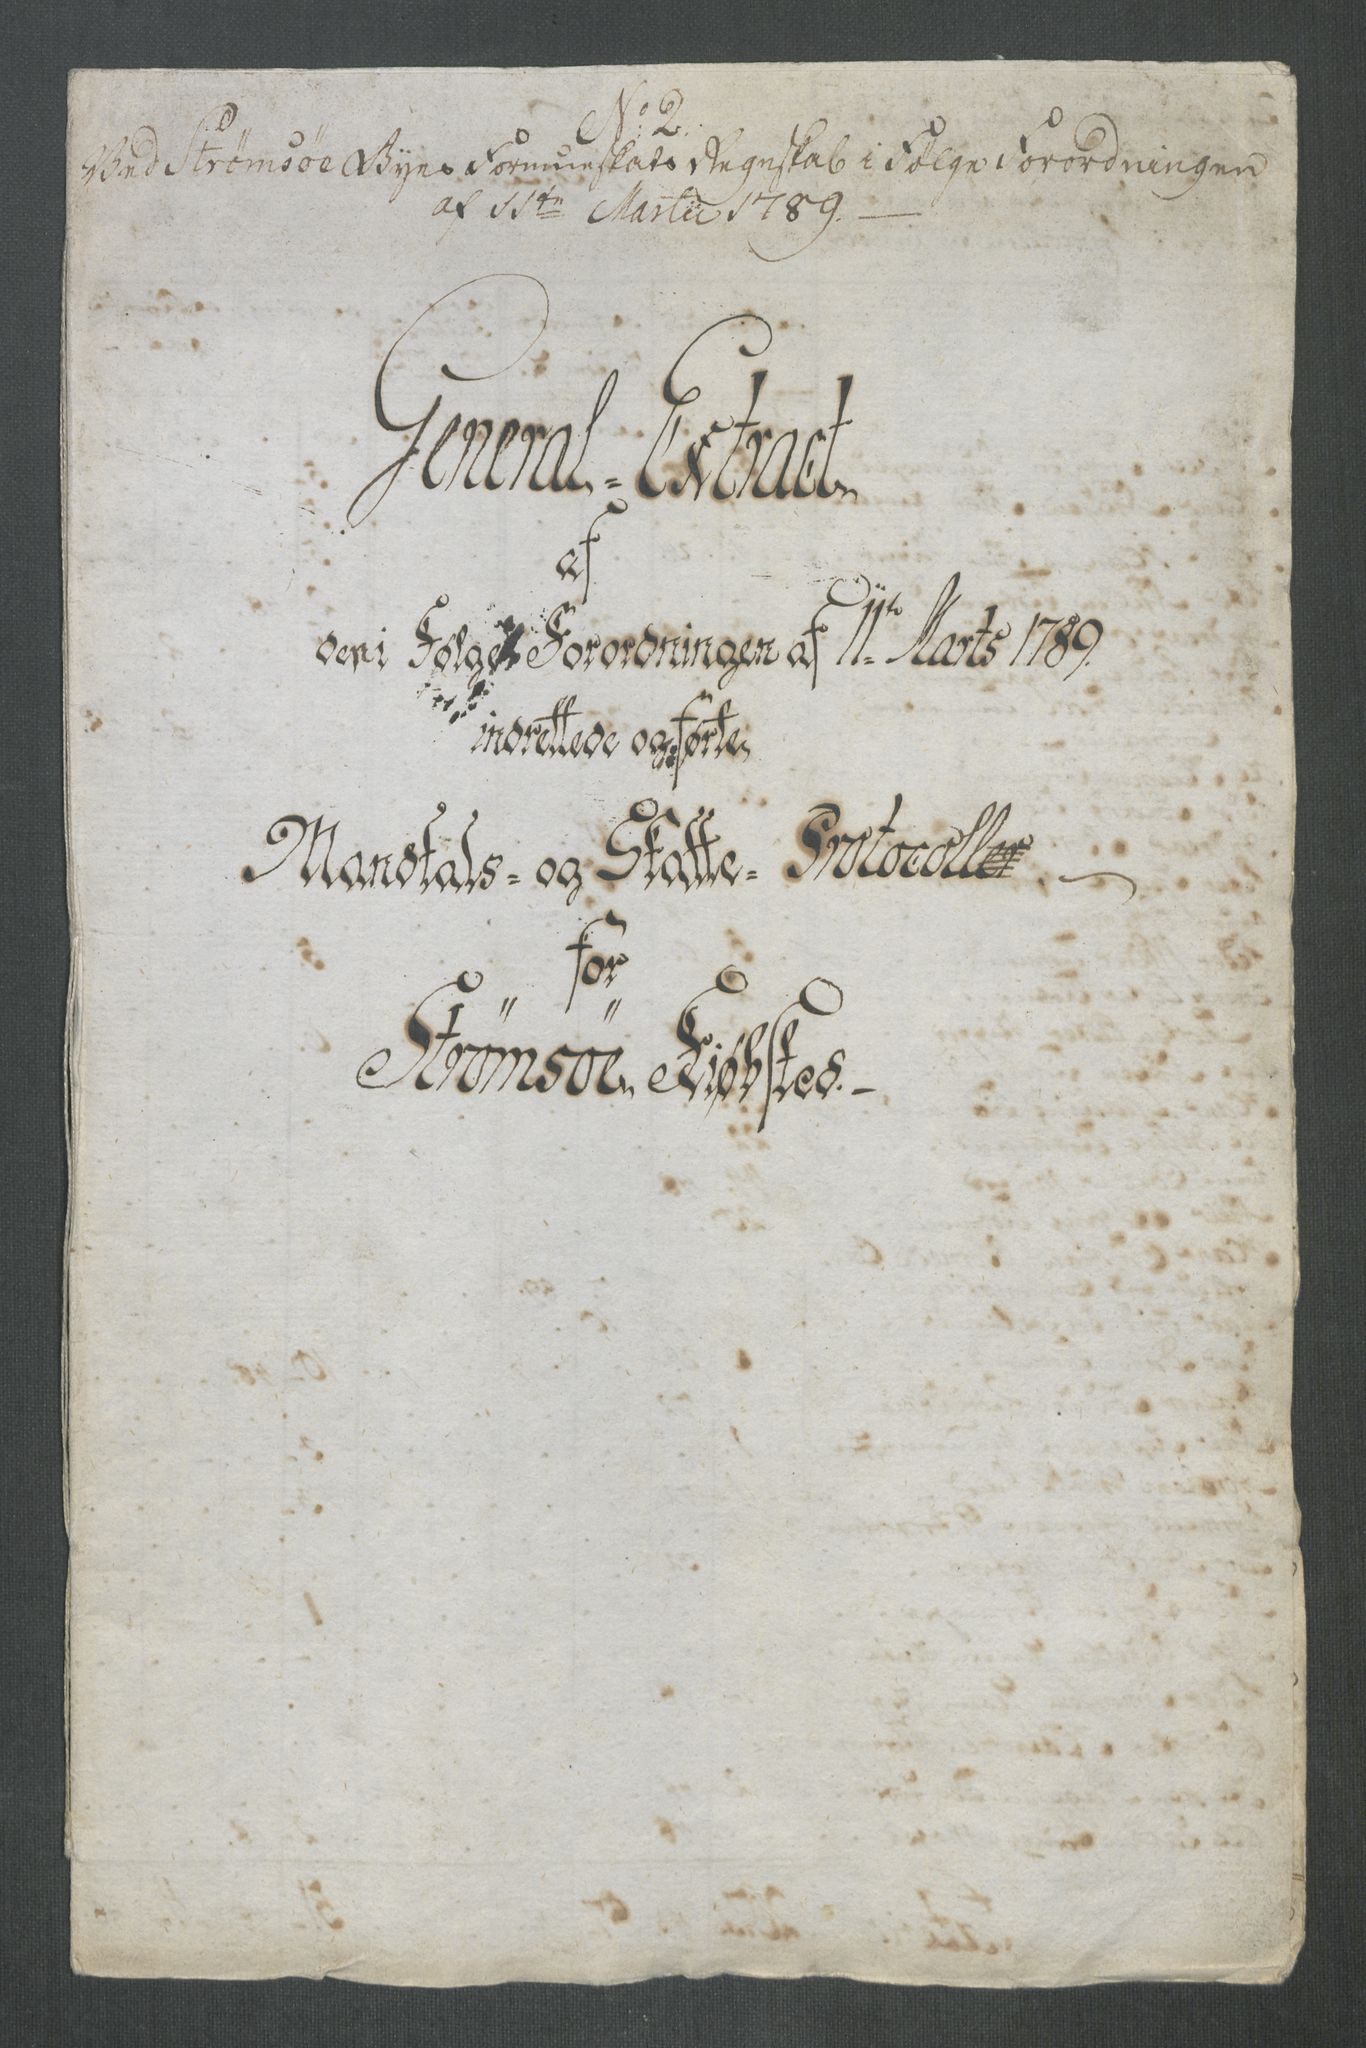 No: 2.
Ved Strømsøe Byes Formueskats Regnskab i Følge Forordningen
af 11te Martii 1789.
General-Extract
af
de i Følge Forordningen af 11te Marts 1789.
indrettede og førte
Mandtals- og Skatte- Protocoller
for
Strømsöe Kiøbsted.